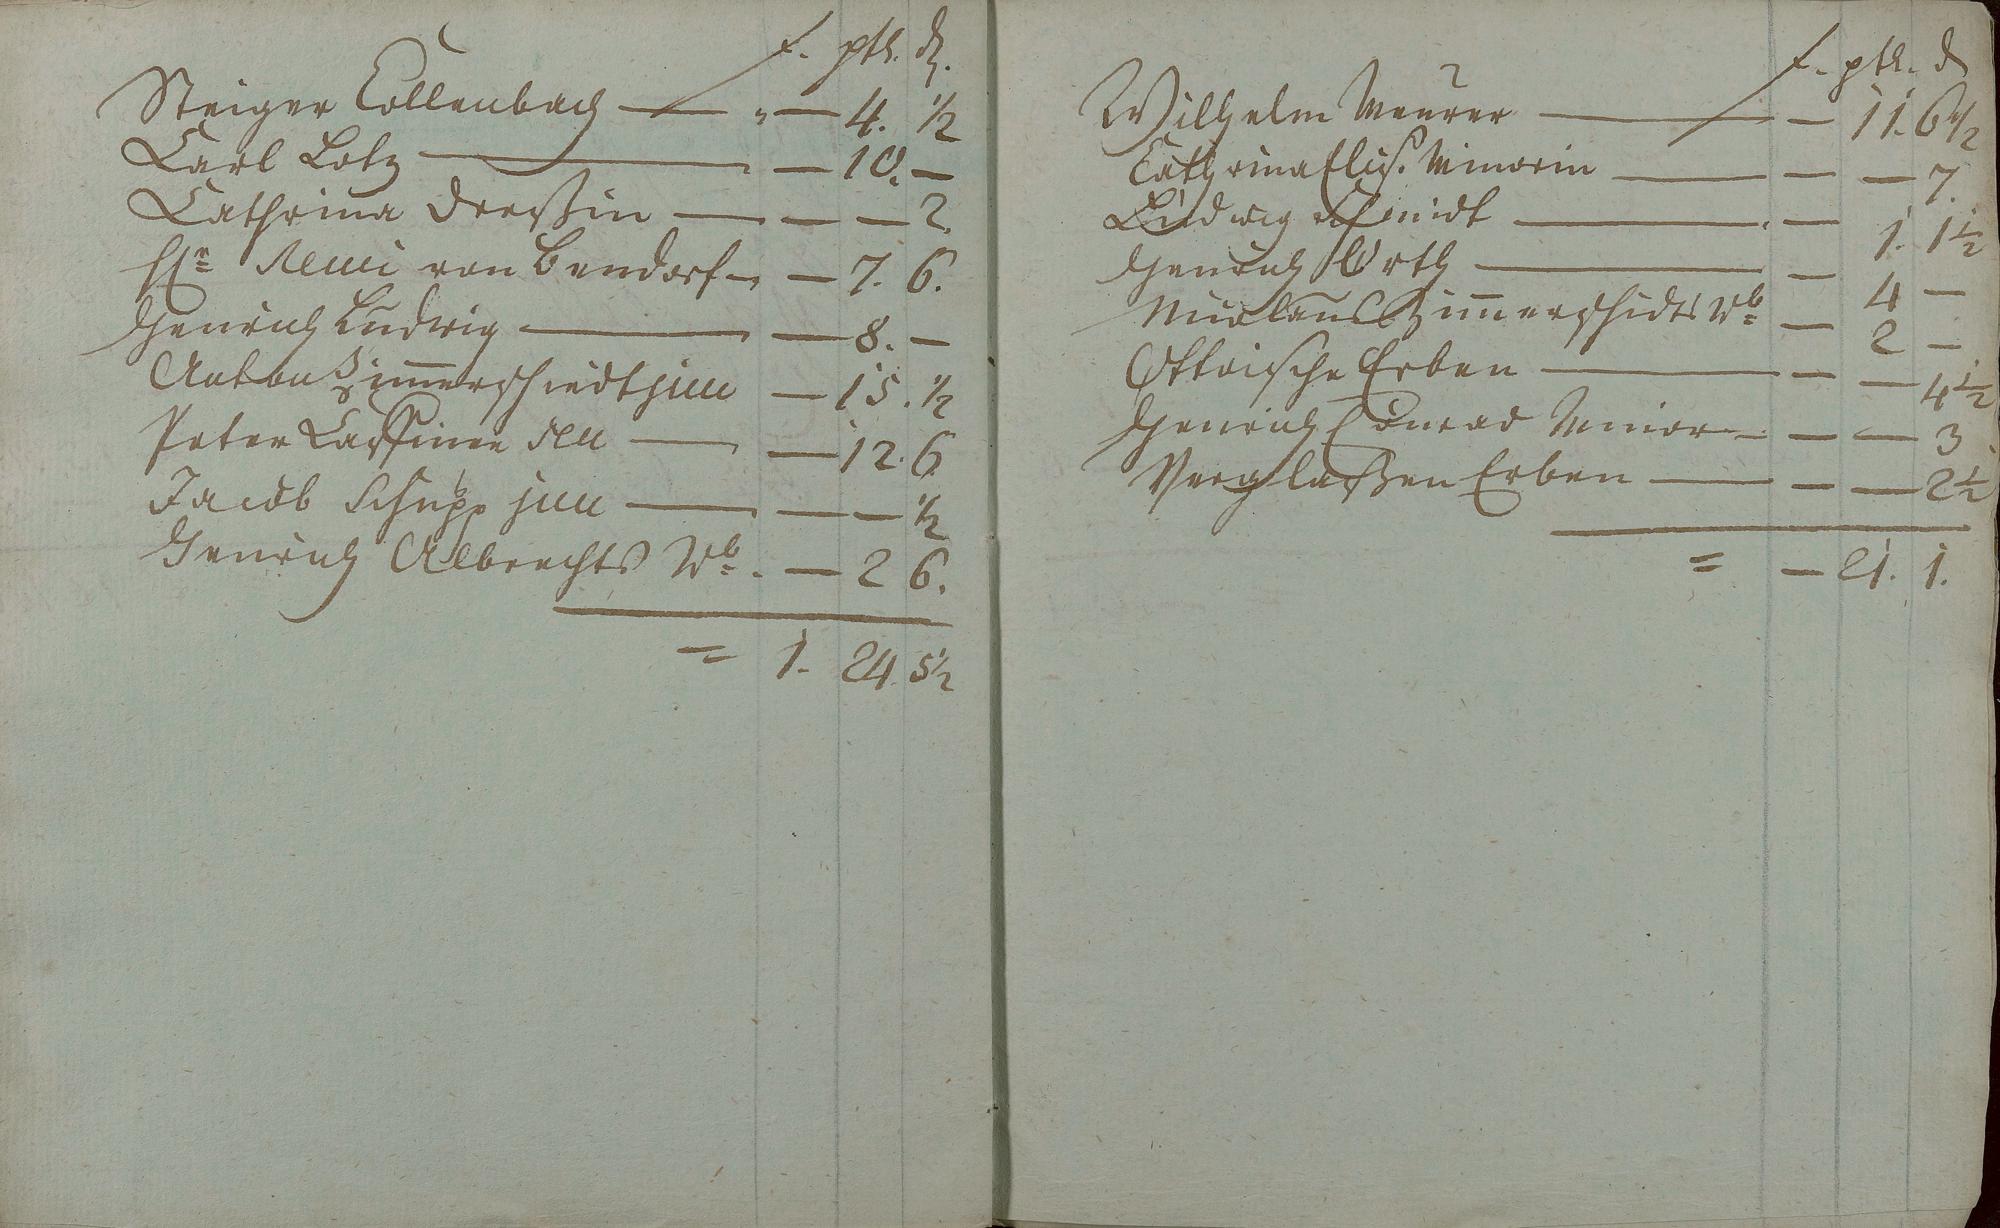 f. ptr. d.
Steiger Collenbach — " — 4. ½
Carl Lotz — — 10. —
Cathrina Dreeßin — — — 2.
Hr. Remi von Bendorf — — 7. 6.
Henrich Ludwig — — 8. —
Anton Zimmerschiedt jun — 15. ½
Peter sen — — 12. 6
Jacob Schupp jun — — — ½
Henrich Albrechts Wb. — 2 6.
= 1. 24. 5½
f. ptr. d
Wilhelm Meurer — — 11. 6½
Cathrina Elis. Minorin — — — 7.
Ludwig Schmidt — — 1. 1½
Henrich Orth — — 4 —
Nicolaus Zimmerschidts Wb. — 2 —
Ottoische Erben — — — 4½
Henrich Conrad Minor — — — 3
Erben — — — 2½
= — 21. 1.